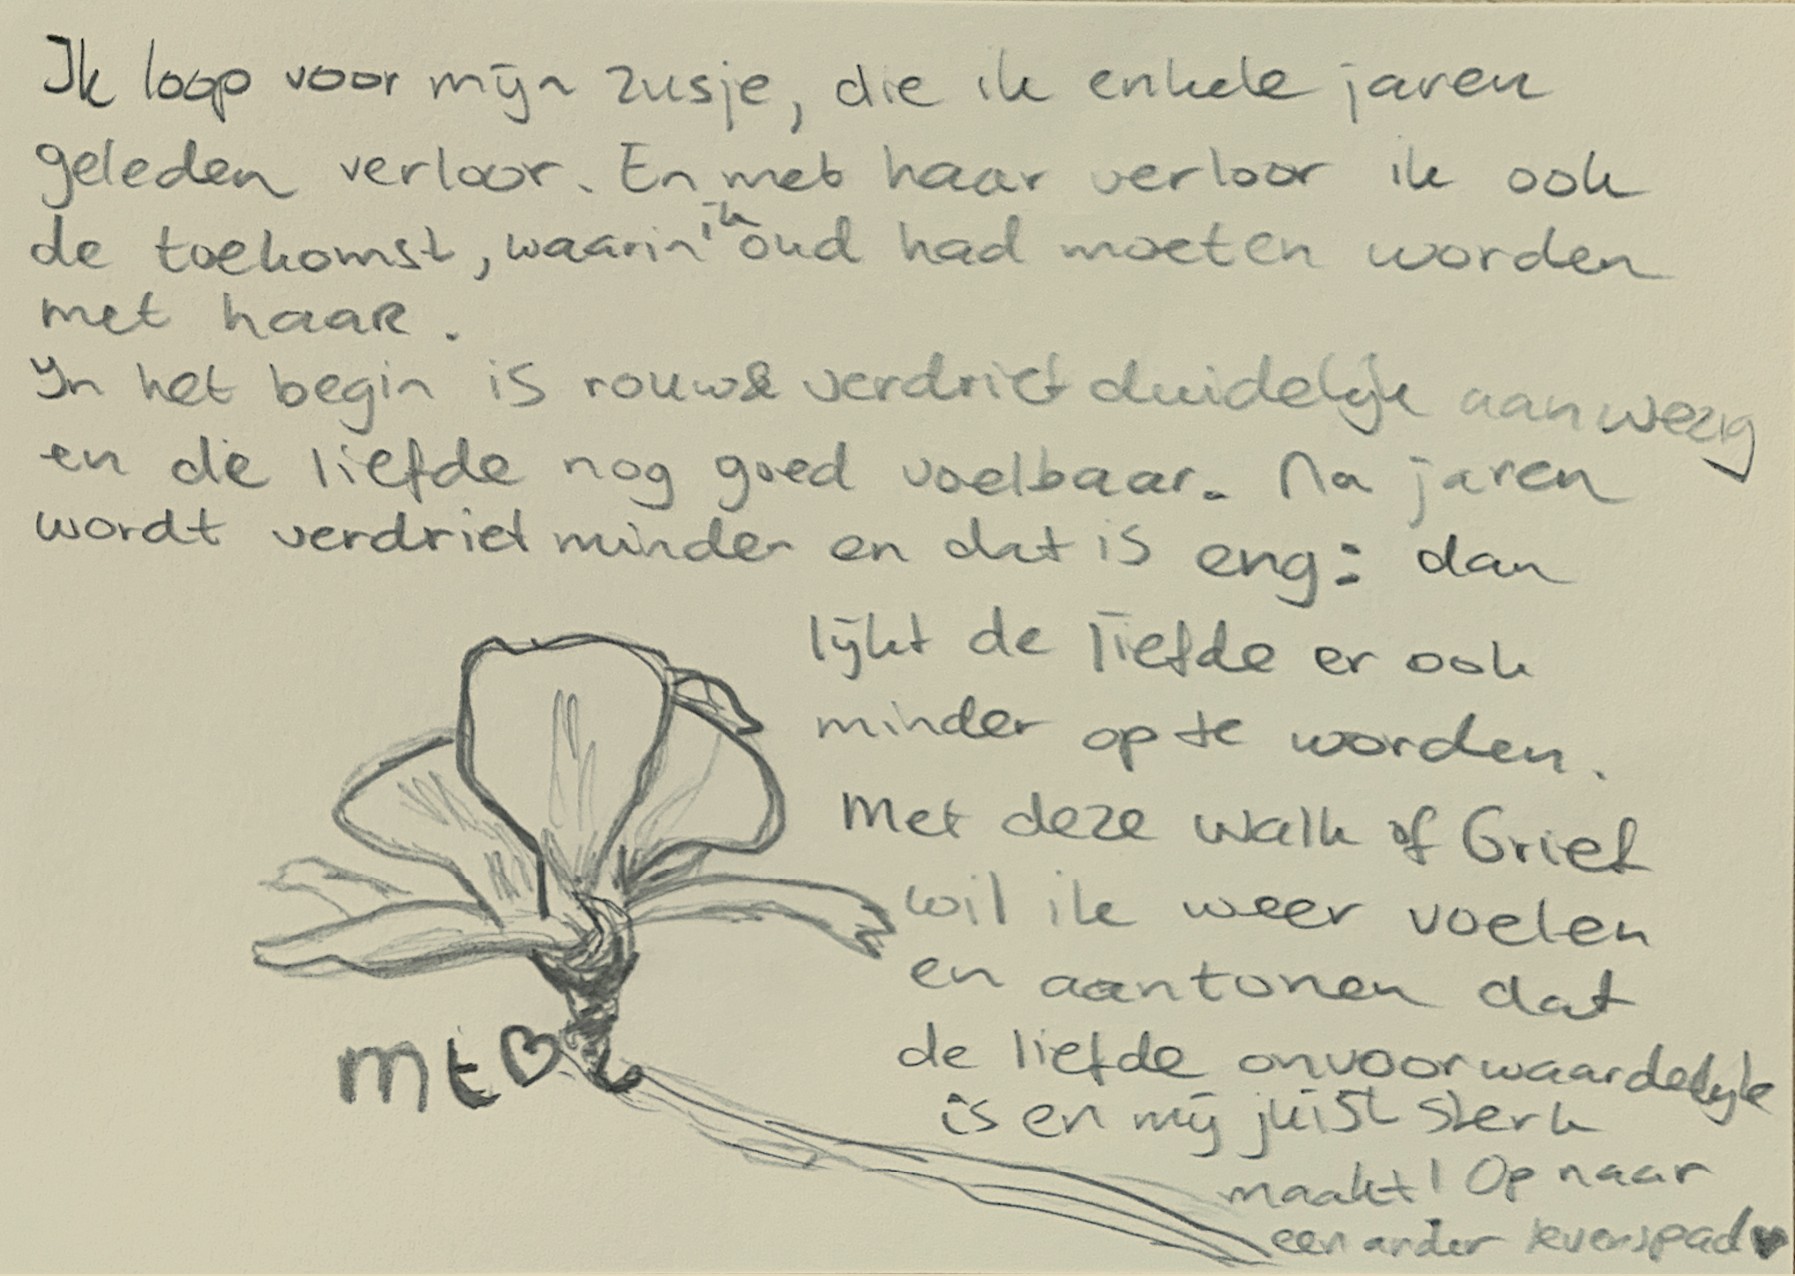 Ik loop voor mijn zusje, die ik enkele jaren
geleden verloor. En met haar verloor ik ook
de toekomst, waarin ik oud had moeten worden
met haar.
In het begin is rouw & verdriet duidelijk aanwezig
en de liefde nog goed voelbaar. Na jaren
wordt verdriet minder en dat is eng: dan
lijkt de liefde er ook
minder op te worden.
Met deze Walk of Grief
wil ik weer voelen
en aantonen dat
de liefde onvoorwaardelijk
is en mij juist sterk
maakt! Op naar
een ander levenspad ♥
mt♡